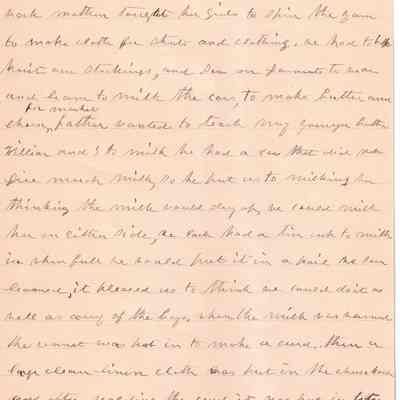 work mother taught her girls to spin the yarn
to make cloth for skirts and clothing. we had to
knit our stockings, and sew on garments to wear
and learn to milk the cows, to make butter and
for market
cheese, father wanted to teach my younger brother
William and I to milk he had a cow that did not
give much milk, so he put us to milking her
thinking the milk would dry up, we could milk
her on either side, we each had a tin cup to milk
in when full we would put it in a pail we soon
learned, it pleased us to think we could do it as
well as any of the boys, when the milk was warmed
the rennet was put in to make a curd, then a
large clean linen cloth was put in the cheese
and after the curd it was put in